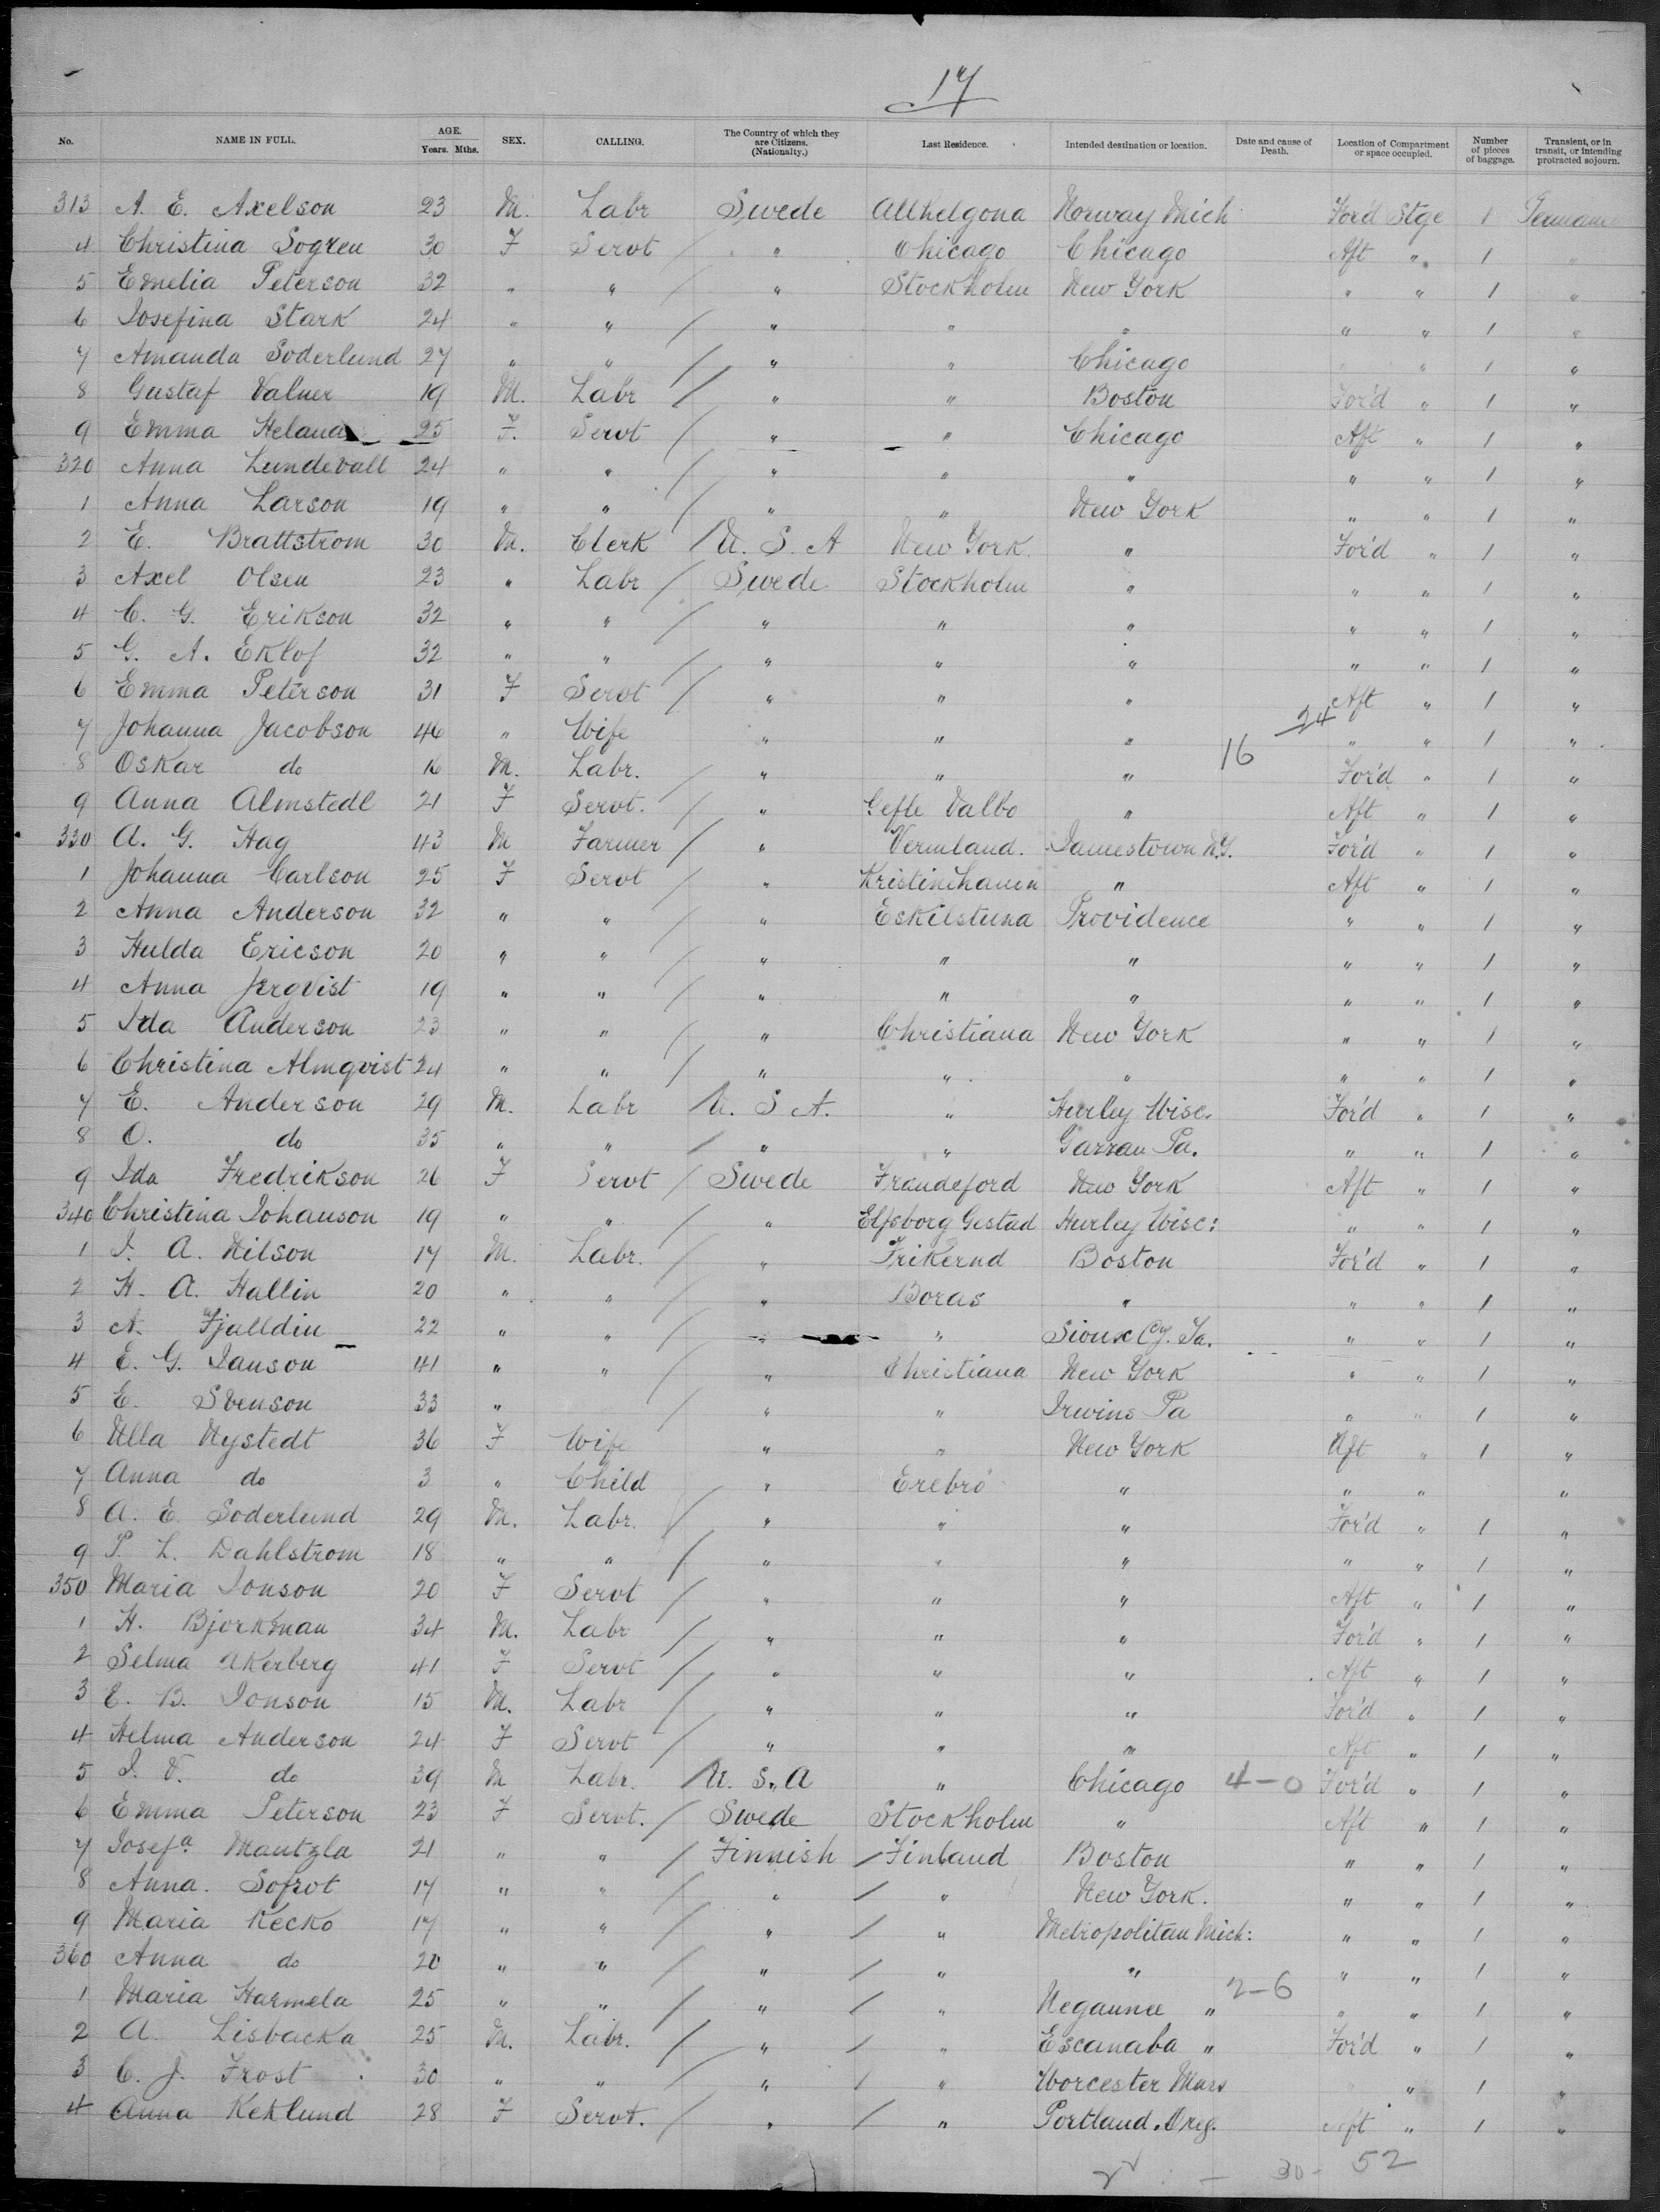 17
No. NAME IN FULL. AGE. Years. Mths. SEX. CALLING. The Country of which they are Citizens. (Nationalty.) Last Residence. Intended destination or location. Date and cause of Death. Location of Compartment or space occupied. Number of pieces of baggage. Transient, or in transit, or intending protracted sojourn.
313 A. E. Axelson 23 M. Labr Swede Allhelgona Norway Mich For'd Stge 1
4 Christina Sogren 30 F Servt / " Chicago Chicago Aft " 1 "
5 Emelia Peterson 32 " " / " Stockholm New York " " 1 "
6 Josefina Stark 24 " " / " " " " " 1 "
7 Amanda Soderlund 27 " " / " " Chicago " " 1 "
8 Gustaf Valner 19 M. Labr / " " Boston For'd " 1 "
9 Emma Helana 25 F. Servt / " " Chicago Aft " 1 "
320 Anna Lundevall 24 " " / " " " " " 1 "
1 Anna Larson 19 " " / " " New York " " 1 "
2 E. Brattstrom 30 M. Clerk / U. S. A New York. " For'd " 1 "
3 Axel Olsen 23 " Labr / Swede Stockholm " " " 1 "
4 C. G. Erikson 32 " " / " " " " " 1 "
5 G. A. Eklof 32 " " / " " " " " 1 "
6 Emma Peterson 31 F Servt / " " " Aft " 1 "
7 Johanna Jacobson 46 " Wife " " " 24 " " 1 "
8 Oskar do 16 M. Labr. / " " " 16 For'd " 1 "
9 Anna Almstedl 21 F Servt. / " Gefle Valbo " Aft " 1 "
330 A. G. Hag 43 M Farmer / " Vermland. Jamestown N.Y. For'd " 1 "
1 Johanna Carlson 25 F Servt / " Kristinehamn " Aft " 1 "
2 Anna Anderson 32 " " / " Eskilstuna Providence " " 1 "
3 Hulda Ericson 20 " " / " " " " " 1 "
4 Anna Jergvist 19 " " / " " " " " 1 "
5 Ida Anderson 23 " " / " Christiana New York " " 1 "
6 Christina Almqvist 24 " " / " " " " " 1 "
7 E. Anderson 29 M. Labr / U. S A. " Hurley Wisc. For'd " 1 "
8 O. do 35 " " / " " Garzau Pa. " " 1 "
9 Ida Fredrikson 26 F Servt / Swede Frandeford New York Aft " 1 "
340 Christina Johanson 19 " " / " Elfsborg Gestad Hurley Wisc: " " 1 "
1 J. A. Nilson 17 M. Labr. / " Frikernd Boston For'd " 1 "
2 H. A. Hallin 20 " " / " Boras " " " 1 "
3 A. Fjalldin 22 " " / " " Sioux Cy. Ia. " " 1 "
4 E. G. Janson 41 " " / " Christiana New York " " 1 "
5 E. Svenson 33 " / " " Irwins Pa " " 1 "
6 Ulla Nystedt 36 F Wife " " New York Aft " 1 "
7 Anna do 3 " Child " Erebro " " " "
8 A. E. Soderlund 29 M. Labr. / " " " For'd " 1 "
9 P. L. Dahlstrom 18 " " / " " " " " 1 "
350 Maria Jonson 20 F Servt / " " " Aft " 1 "
1 H. Bjorkman 34 M. Labr / " " " For'd " 1 "
2 Selma Akerberg 41 F Servt / " " " Aft " 1 "
3 E. B. Jonson 15 M. Labr / " " " For'd " 1 "
4 Helma Anderson 24 F Servt / " " " Aft " 1 "
5 J. V. do 39 M Labr. / U. S. A " Chicago 4-0 For'd " 1 "
6 Emma Peterson 23 F Servt. / Swede Stockholm " Aft " 1 "
7 Josefa. Mantzla 21 " " / Finnish / Finland Boston " " 1 "
8 Anna. Sofrot 17 " " / " / " New York. " " 1 "
9 Maria Kecko 17 " " / " / " Metropolitan Mich: " " 1 "
360 Anna do 20 " " / " / " " " " 1 "
1 Maria Harmela 25 " " / " / " Negaunee " 2-6 " " 1 "
2 A. Lisbacka 25 M. Labr. / " / " Escanaba " For'd " 1 "
3 C. J. Frost 30 " " / " / " Worcester Mass " 1 "
4 Anna Keklund 28 F Servt. / " / " Portland. Oreg. Aft " 1 "
30- 52